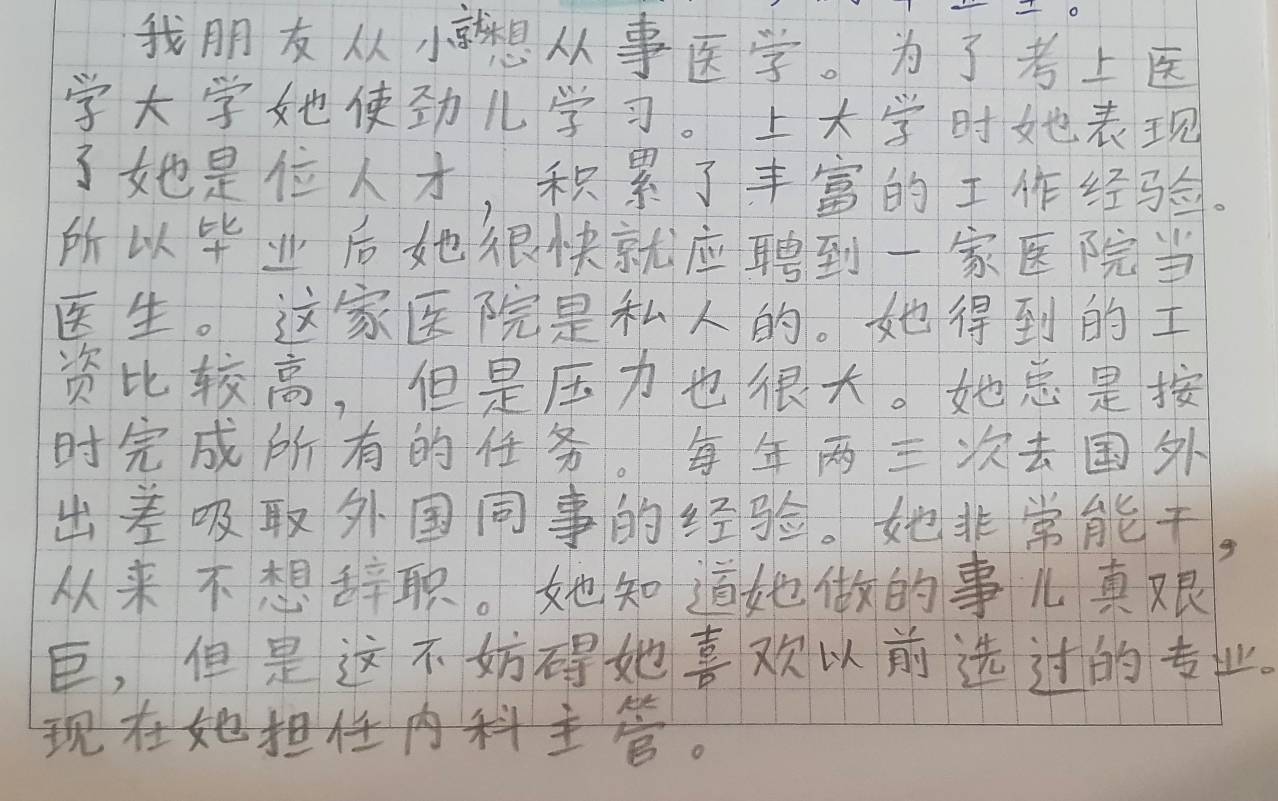 我朋友从小就想从事医学。为了考上医
学大学她使劲儿学习。上大学时她表现
了她是位人才，积累了丰富的工作经验。
所以毕业后她很快就应聘到一家医院当
医生。这家医院是私人的。她得到的工
资比较高，但是压力也很大。她总是按
时完成所有的任务。每年两三次去国外
出差吸取外国同事的经验。她非常能干，
从来不想辞职。她知道她做的事儿真艰
巨，但是这不妨碍她喜欢以前选过的专业。
现在她担任内科主管。